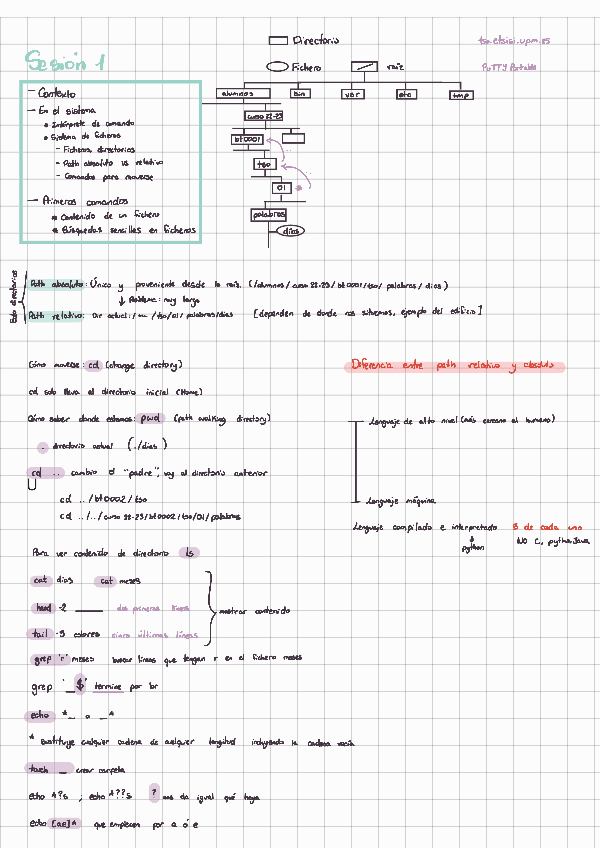 Directorio
tso.etsisi.upm.es
Sesión 1
Fichero
raíz
PuTTY Portable
alumnos
bin
var
etc
tmp
curso 22-23
bt0001
tso
01
palabras
días
- Contexto
- En el sistema
• Intérprete de comando
• Sistema de ficheros
- Ficheros, directorios
- Path absoluto vs relativo
- Comandos para moverse
- Primeros comandos
• Contenido de un fichero
• Búsquedas sencillas en ficheros
Path absoluto: Único y proveniente desde la raíz. (/alumnos/curso 22-23/bt0001/tso/palabras/días)
↓ Problema: muy largo
Path relativo: Dir actual: /tso/01/palabras/días [dependen de donde nos situemos, ejemplo del edificio]
Cómo moverse: cd (change directory)
Diferencia entre path relativo y absoluto
cd solo lleva al directorio inicial (Home)
Cómo saber donde estamos: pwd (path walking directory)
Lenguaje de alto nivel (más cercano al humano)
. directorio actual (./días)
cd .. cambio a "padre", voy al directorio anterior
cd ../bt0002/tso
Lenguaje máquina
cd ../../curso 22-23/bt0002/tso/01/palabras
Lenguaje compilado e interpretado 3 de cada uno
↓
python
NO C, python, Java
Para ver contenido de directorio ls
cat días cat meses
head -2 ___ dos primeras líneas
mostrar contenido
tail -5 colores cinco últimas líneas
grep 'r' meses buscar líneas que tengan r en el fichero meses
grep '_$' termine por br
echo *_ o _*
* sustituye cualquier cadena de cualquier longitud incluyendo la cadena vacía
touch _ crear carpeta
echo *?s ; echo *??s ? nos da igual qué haya
echo [ae]* que empiecen por a ó e